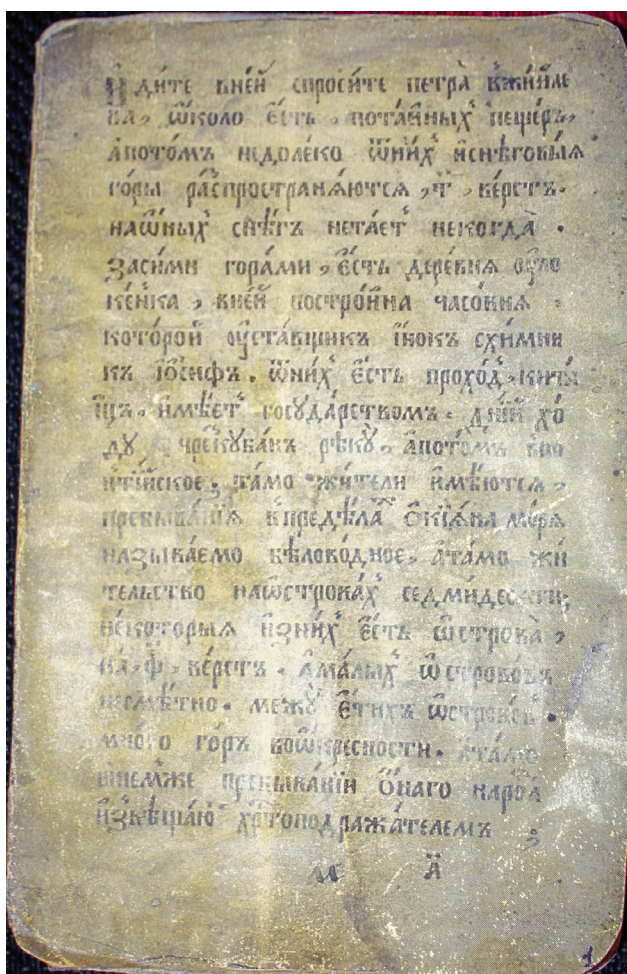 И҆ди́те вне́й спроси́ть петра̀ кѝжи́йло
ва, ѿколо є҆́сть потае́нныхъ пеще́ръ,
а҆пото́мъ недоле́ко ѿни́хъ и҆снѣ́говыѧ
го́ры распространѧ́ютсѧ, т҃ ве́рстъ.
наѡ҆́ныхъ снѣ́гъ нета́етъ некогда̀.
засими гора́ми, є҆́сть дере́внѧ
вне́й постро́йна часо́внѧ
кото́рой оу҆ста́вщикъ и҆́нокъ схи́мни
къ і҆ѡ́сифъ. ѿни́хъ є҆́сть прохо́дъ, кита́
йцъ. и҆мѣ́етъ госуда́рствомъ. дні́й хо́
ду чрезкуба́нъ рѣ́ку, а҆пото́мъ
та́мо жи́тели и҆мѣ́ютсѧ,
пребыва́нїѧ впредѣ́лахъ ѻ҆кїѧ́на мо́рѧ
называ́емо бѣлово́дное, а҆та́мо жи́
тельство наѡ҆строва́хъ седми́десѧти,
не́которыѧ и҆зни́хъ є҆́сть ѡ҆строва̀,
на, ф҃, ве́рстъ. а҆ма́лыхъ ѡ҆строво́въ
несмѣ́тно. межу̀ є҆́тихъ ѡ҆строво́въ.
мно́го го́ръ воѡ҆кре́сности. а҆та́мо
ѻ҆́наго наро́да
и҆звѣща́ю хрⷭ҇топодража́телемъ